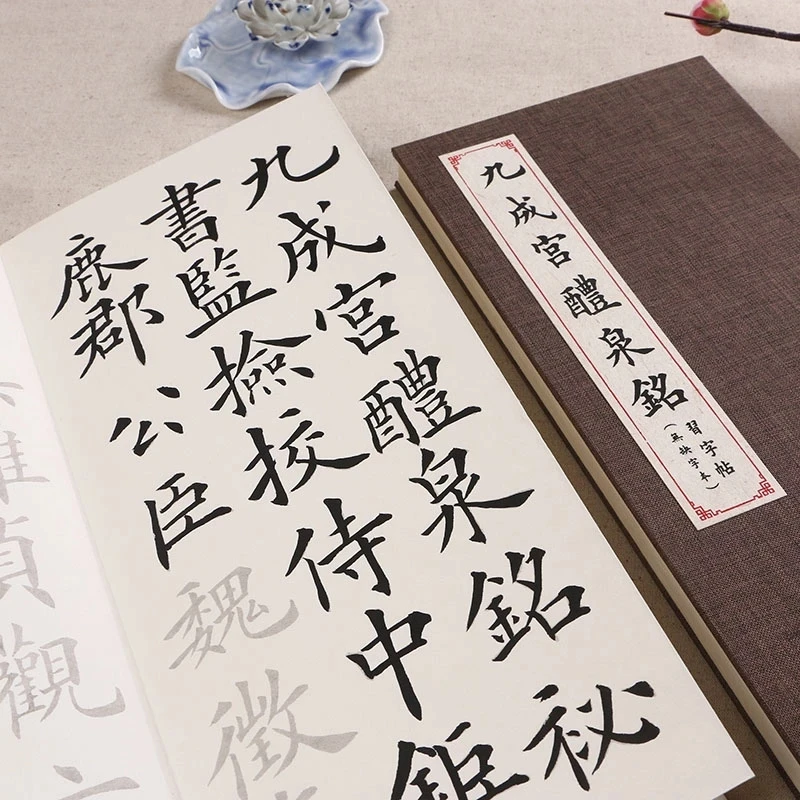 九成宮醴泉銘祕
書監撿挍侍中鉅
鹿郡公臣魏徵
維貞觀六
九成宮醴泉銘
習字帖
(無缺字本)